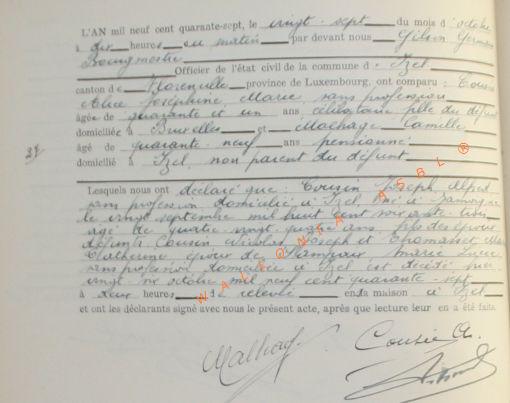 L'AN mil neuf cent quarante-sept, le vingt-sept du mois d'octobre
à dix heures du matin par devant nous Gilson Germain
Bourgmestre
Officier de l'état civil de la commune de Izel
canton de Florenville province de Luxembourg, ont comparu: Cousin
Alice Joséphine, Marie, sans profession
âgée de quarante et un ans, célibataire fille du défunt
domiciliée à Bruxelles et Malhage Camille
âgé de quarante-neuf ans pensionné
domicilié à Izel, non parent du défunt
37
Lesquels nous ont déclaré que: Cousin Joseph Alfred
sans profession domicilié à Izel, né à Jamoigne
le vingt septembre mil huit cent soixante trois
âgé de quatre vingt quatre ans, fils des époux
défunts Cousin Nicolas Joseph et Thomasset
Catherine, époux de Marie
sans profession domiciliée à Izel, est décédé hier
vingt six octobre mil neuf cent quarante-sept
à deux heures de relevée en sa maison à Izel
et ont les déclarants signé avec nous le présent acte, après que lecture leur en a été faite.
Malhage Cousin A.
WALLONIA ASBL ®